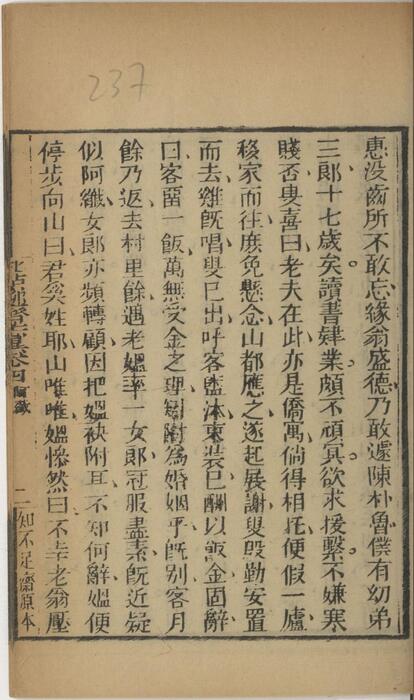 惠沒齒所不敢忘緣翁盛德乃敢遽陳朴魯僕有幼弟
三郎十七歲矣讀書肄業頗不頑冥欲求援繫不嫌寒
賤否叟喜曰老夫在此亦是僑寓倘得相托便假一廬
移家而往庶免懸念山都應之遂起展謝叟殷勤安置
而去雞旣唱叟已出呼客盥沐束裝已酬以飯金固辭
曰客留一飯萬無受金之理矧附為婚姻乎旣別客月
餘乃返去村里餘遇老媼率一女郎冠服盡素旣近疑
似阿纖女郎亦頻轉顧因把媼袂附耳不知何辭媼便
停步向山曰君奚姓耶山唯唯媼慘然曰不幸老翁壓
卷四 阿纖
二 知不足齋原本
237